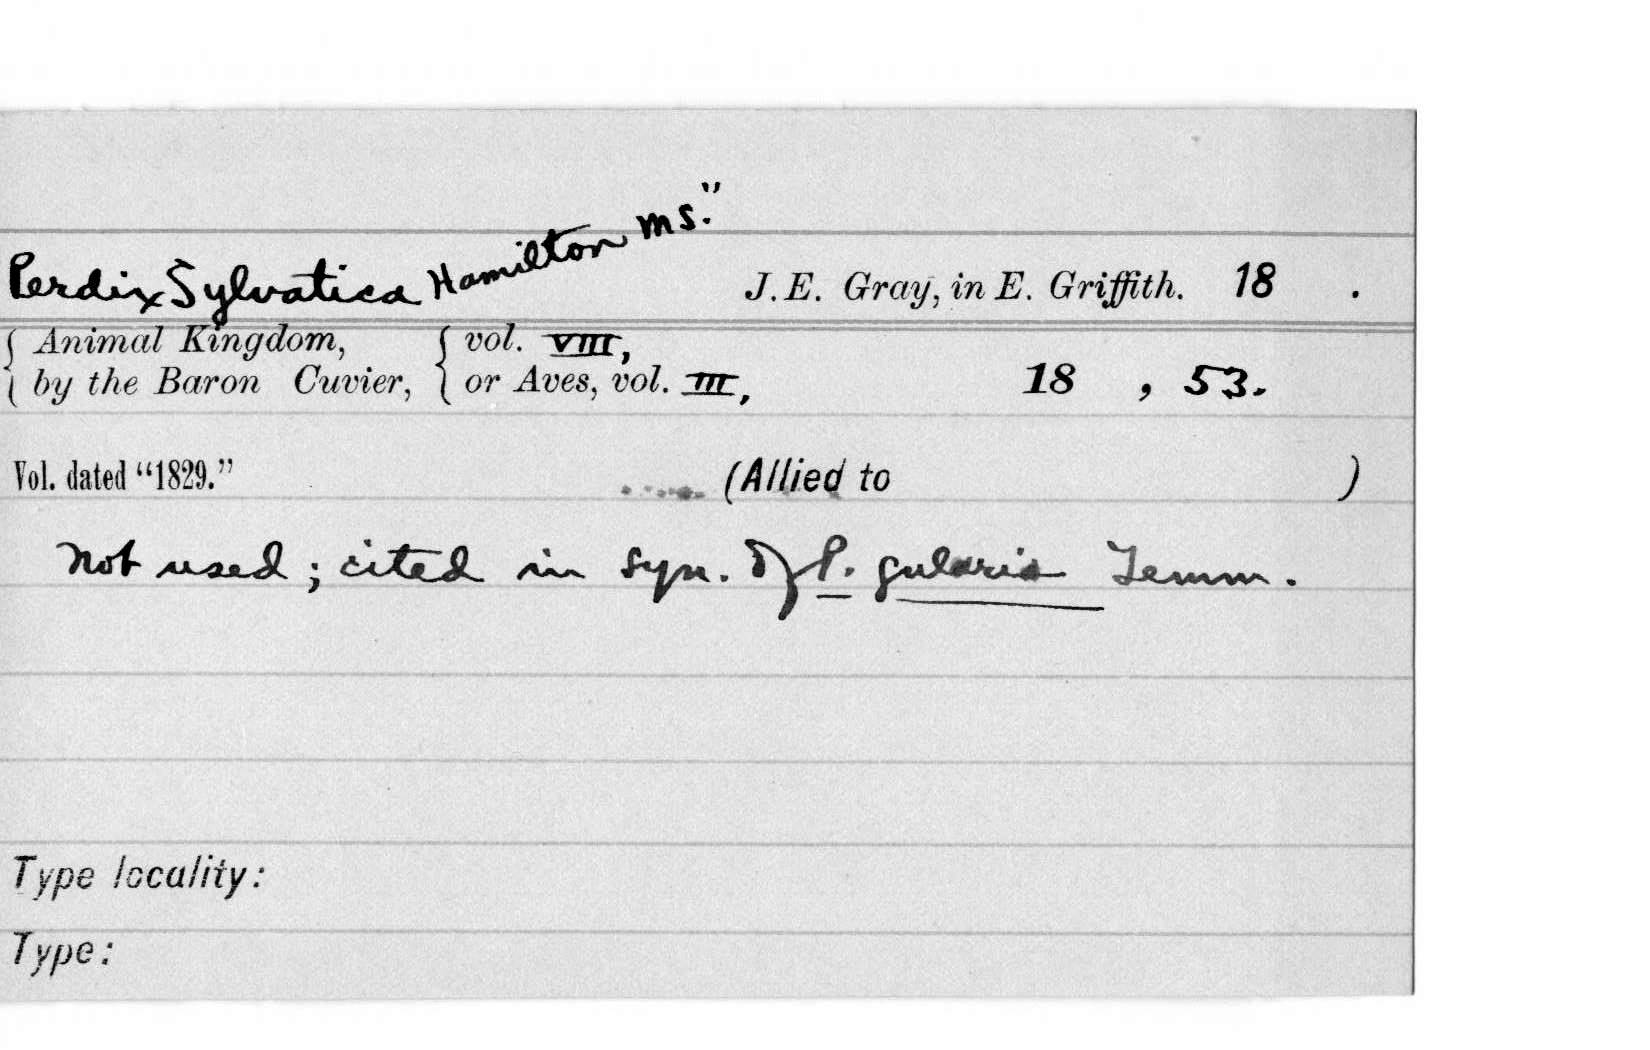 Perdix Sylvatica Hamilton MS." J. E. Gray, in E. Griffith. 18 .
{ Animal Kingdom, { vol. VIII,
by the Baron Cuvier, or Aves, vol. III, 18 , 53.
Vol. dated "1829." (Allied to )
Not used; cited in syn. of P. gularis Temm.
Type locality:
Type: